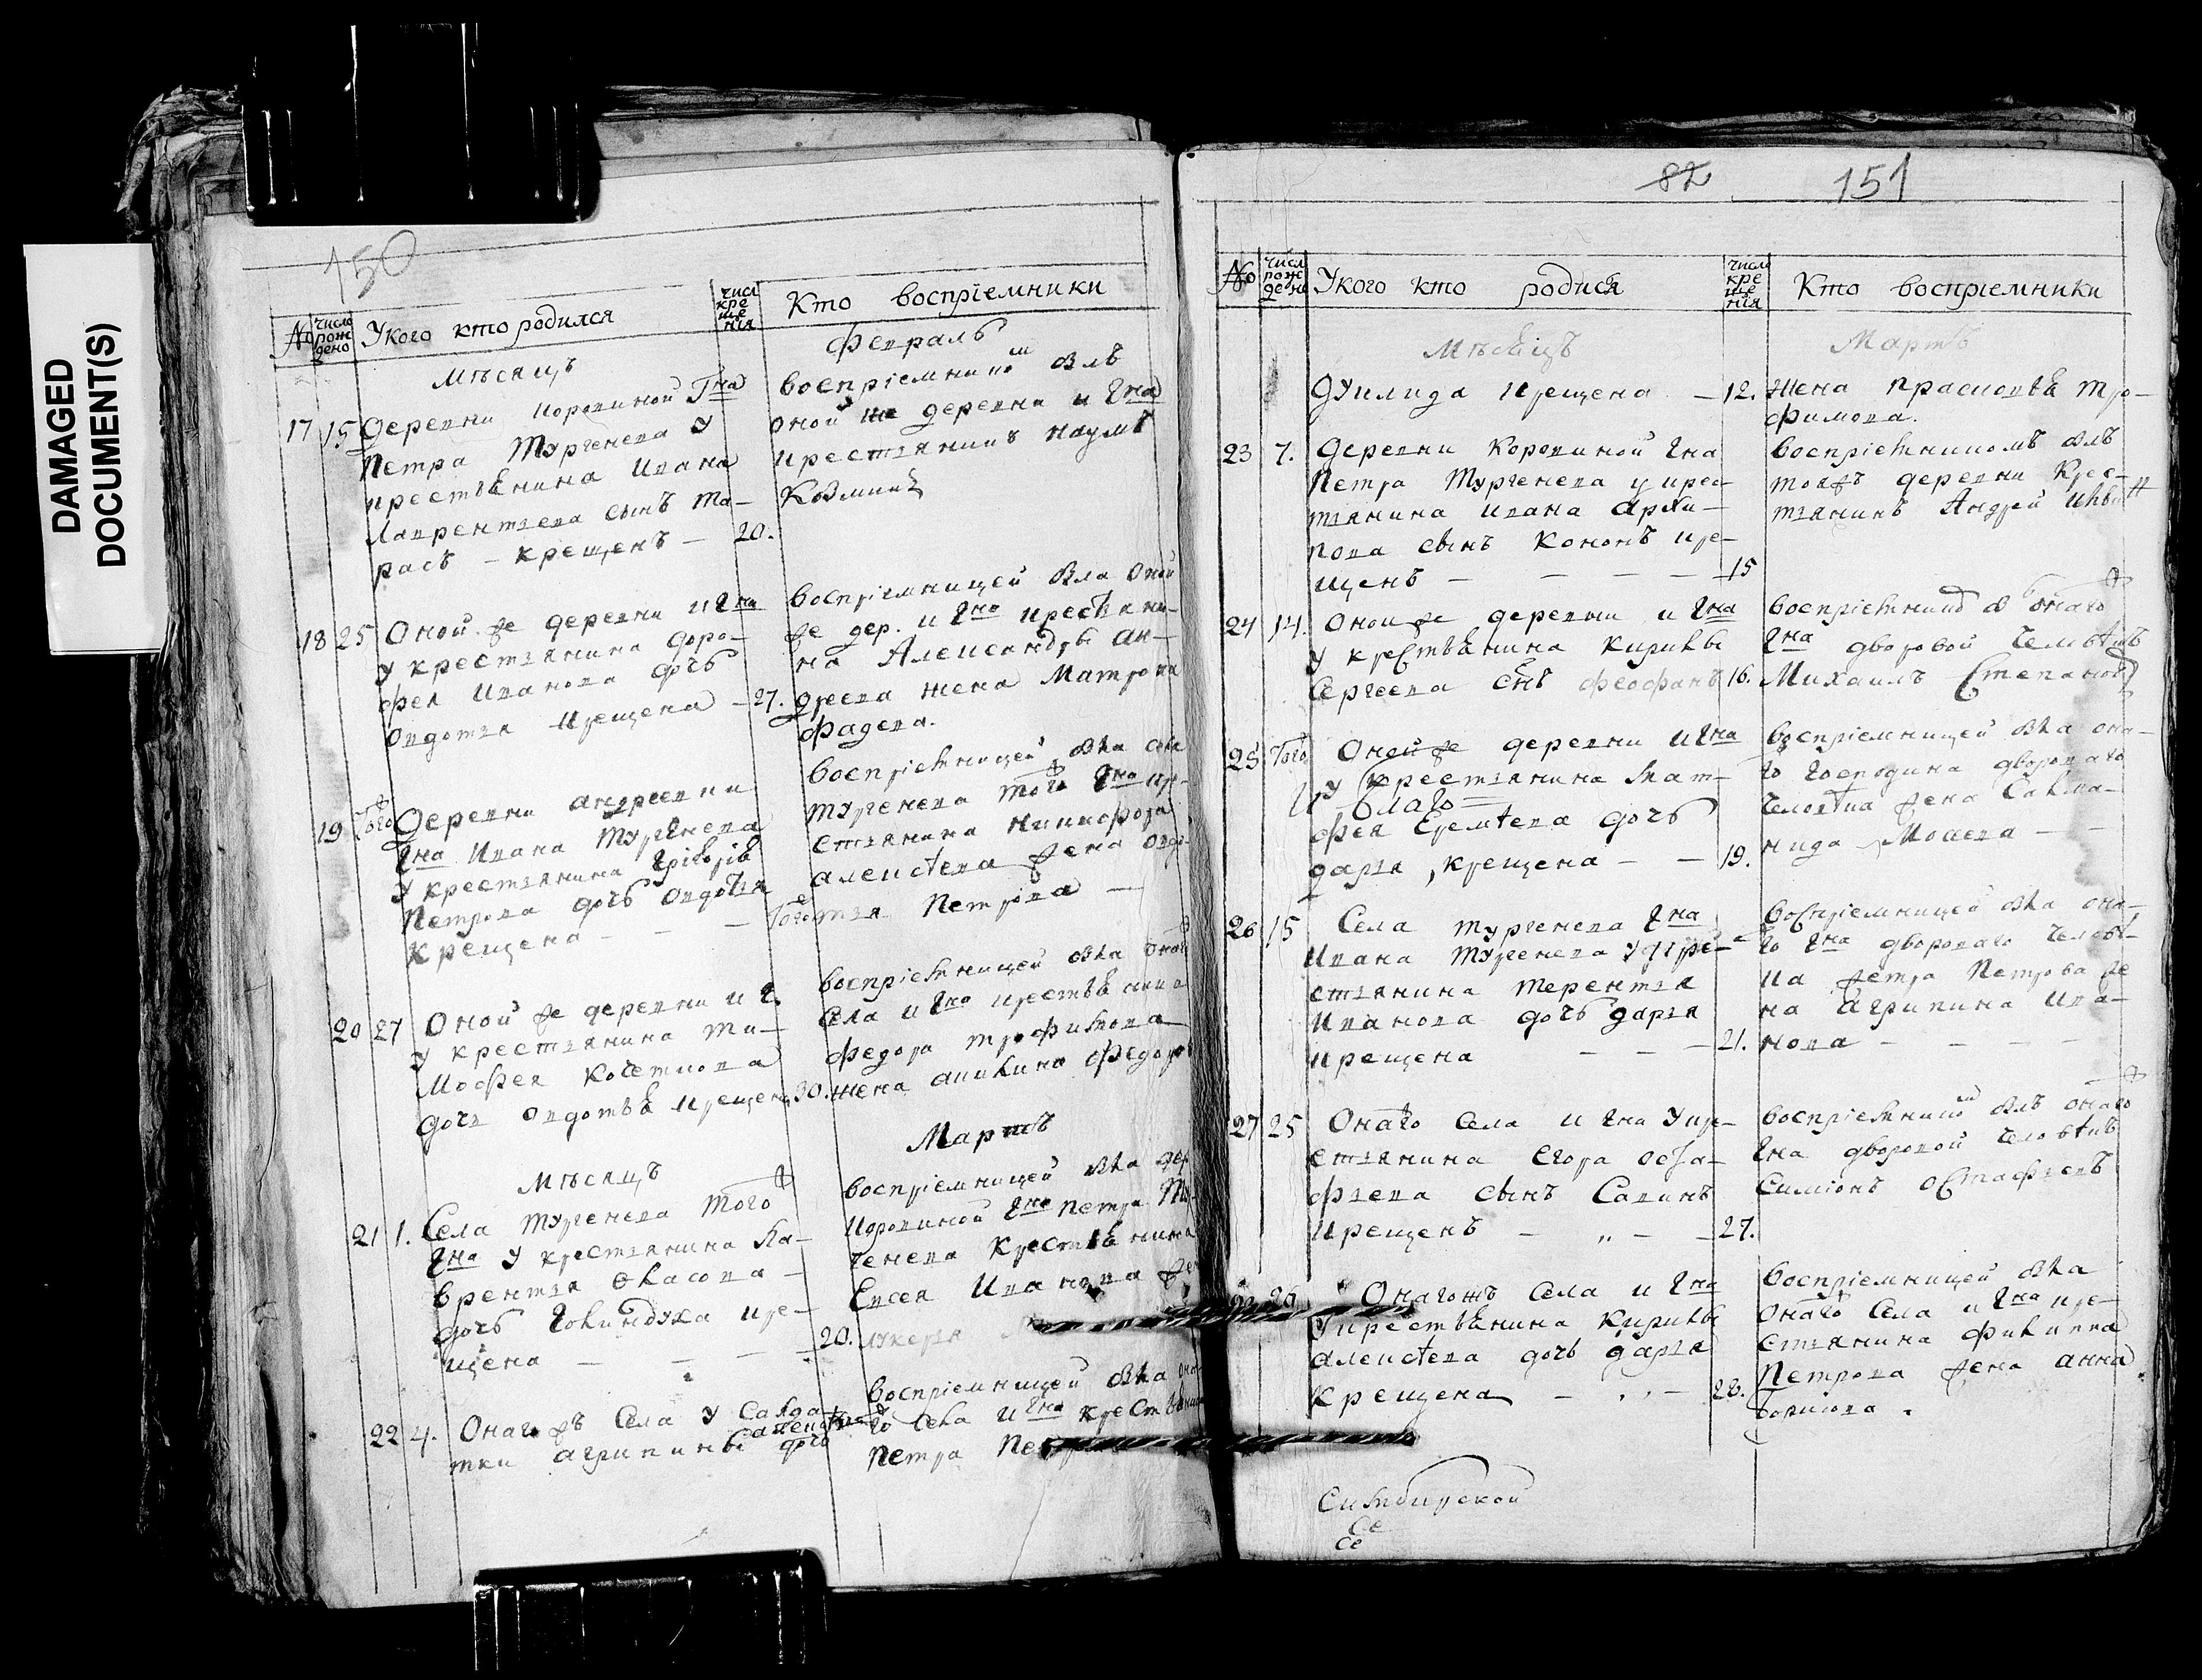 DAMAGED
DOCUMENT(S)
150
№
число рождено
У кого кто родился
числ крещения
Кто воспрiемники
Мѣсяцъ
Февраль
17 15 Деревни Коровиной Гна
Петра Тургенева у
крестьянина Ивана
Лаврентьева сынъ Та-
расъ - крещенъ - 20.
воспрiемникомъ былъ
оной же деревни и Гна
крестьянинъ Наумъ
Козминъ
18 25 Оной же деревни и Гна
у крестьянина Доро-
фея Иванова дочь
Овдотья крещена - 27.
воспрiемницей была оной
же дер. и Гна крестьяни-
на Александры Ан-
дреева жена Матрона
Фадева.
19 Того Деревни Андреевки
Гна Ивана Тургенева
у крестьянина Григорiя
Петрова дочь Овдотья
крещена - - - Того
воспрiемницей была села
Тургенева того Гна кре-
стьянина Никифора
Алексѣева жена Овдо-
тья Петрова -
20 27 Оной же деревни и Г.
у крестьянина Ти-
мофея Кочеткова
дочь Овдотья крещена 30.
воспрiемницей была онаго
села и Гна крестьянина
Федора Трофимова
жена Акилина Федоров
Мѣсяцъ
Мартъ
21 1. Села Тургенева того
Гна у крестьянина Ла-
врентья Власова -
дочь Голиндуха кре-
щена - - - 20.
воспрiемницей была дер
Коровиной Гна Петра Тур-
генева крестьянина
Евсея Иванова жен
лукерья
22 4. Онагожъ села у салда-
тки Агрипины Алексѣев дочь
воспрiемницей была она-
го села и Гна крестьянина
Петра
82 151
№
числ рождене
У кого кто родися
число крещенiя
Кто воспрiемники
Мѣсяцъ
Мартъ
Дукилида крещена - 12.
жена Прасковья Тро-
фимова.
23 7. Деревни Коровиной Гна
Петра Тургенева у крес-
тьянина Ивана Архи-
пова сынъ Кононъ кре-
щенъ - - - - 15
воспрiемникомъ былъ
тояжъ деревни крес-
тьянинъ Андрей
24 14. Оной же деревни и Гна
у крестьянина Кирилы
Сергеева снъ Феофанъ 16.
воспрiемник б онаго
Гна дворовой человѣкъ
Михаилъ Степановъ
25 Того Оной же деревни и Гна
у крестьянина Мат-
фея Еремѣева дочь
Дарья, крещена - - 19.
воспрiемницей была она-
го господина двороваго
человѣка жена Салма-
нида Мокева - -
26 15 Села Тургенева Гна
Ивана Тургенева у кре-
стьянина Терентья
Иванова дочь Дарья
крещена - - - 21.
воспрiемницей была она-
го Гна двороваго человѣ-
ка Петра Петрова же
на Агрипина Ива-
нова - - - -
27 25 Онаго села и Гна у кре-
стьянина Егора Оста-
фьева сынъ Савинъ
крещенъ - „ - - 27.
воспрiемником былъ онаго
Гна дворовой человѣкъ
Симiонъ Остафьевъ
26 Онагожъ села и Гна
у крестьянина Кирилы
Алексѣева дочь Дарья
крещена - - 28.
воспрiемницей была
онаго села и Гна кре-
стьянина Филиппа
Петрова жена Анна
Борисова.
Симбирской
Се
Се